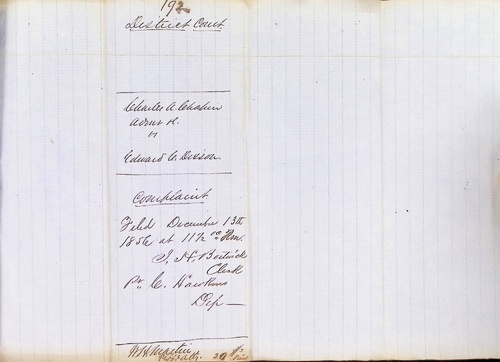 192
District Court
Charles A.
vs
Edward C. Dixson
Complaint
Filed December 13th
1856 at 11½ oc
J. H. Bostwick
Clerk
Pr C. Hawkins
Dep
W. H. Martin
20